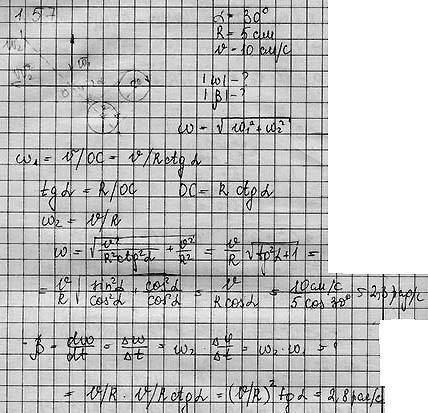 1.57
α = 30°
R = 5 см
v = 10 см/с
|ω| - ?
|β| - ?
ω = √ω₁² + ω₂²
ω₁ = v/OC = v/R ctg α
tg α = R/OC OC = R ctg α
ω₂ = v/R
ω = √(v²/R² ctg² α + v²/R²) = v/R √(tg² α + 1) =
= v/R √(sin² α/cos² α + cos² α/cos² α) = v/R cos α = 10 см/с / 5 cos 30° = 2,3 рад/с
β = dω/dt = Δω/Δt = ω₂ · Δφ/Δt = ω₂ · ω₁ =
= v/R · v/R ctg α = (v/R)² tg α = 2,3 рад/с